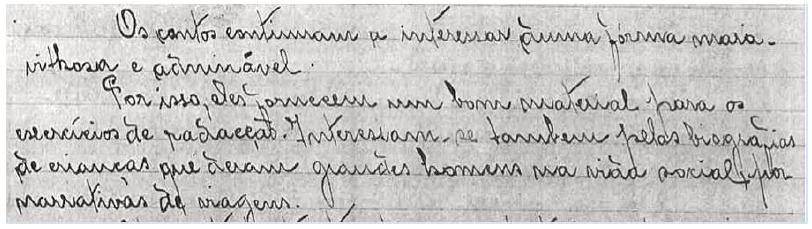 Os contos continuam a interessar duma forma mara-
vilhosa e admirável.
Por isso, eles fornecem um bom material para os
exercícios de redacção. Interessam-se tambem pelas biografias
de crianças que deram grandes homens na vida social, por
narrativas de viagens.